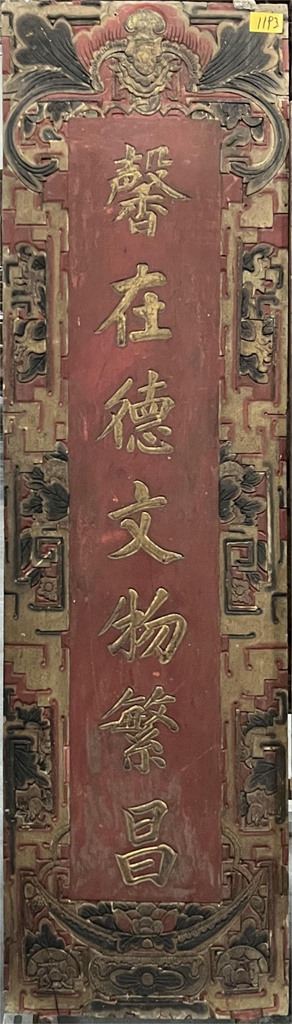 1193
馨在德文物繁昌